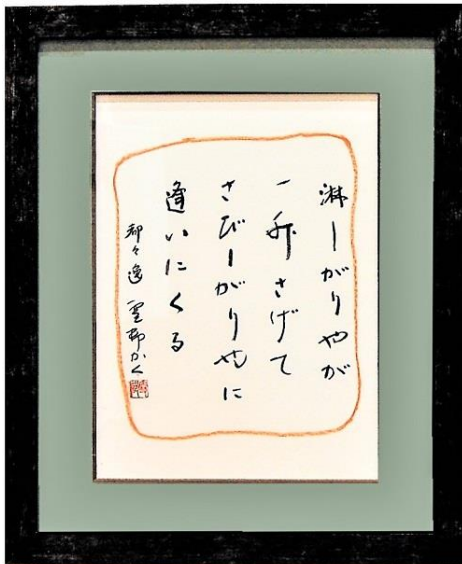 淋しがりやが
一升さげて
さびしがりやに
逢いにくる
都々逸 かく